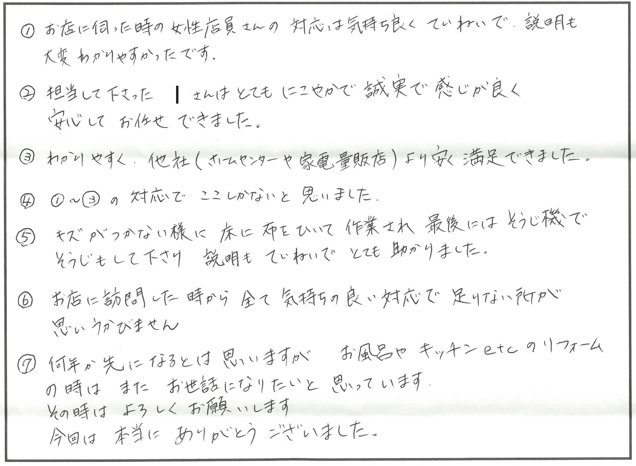 ① お店に伺った時の女性店員さんの対応は気持ち良くていねいで、説明も
大変わかりやすかったです。
② 担当して下さった さんはとてもにこやかで誠実で感じが良く
安心してお任せできました。
③ わかりやすく、他社(ホームセンターや家電量販店)より安く満足できました。
④ ①~③の対応でここしかないと思いました。
⑤ キズがつかない様に床に布をひいて作業され最後にはそうじ機で
そうじもして下さり説明もていねいでとても助かりました。
⑥ お店に訪問した時から全て気持ちの良い対応で足りない所が
思いうかびません
⑦ 何年か先になるとは思いますが お風呂やキッチンetcのリフォーム
の時はまたお世話になりたいと思っています.
その時はよろしくお願いします
今回は本当にありがとうございました。